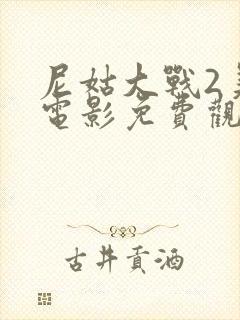 尼姑大戰2
電影免費觀
古井貢酒